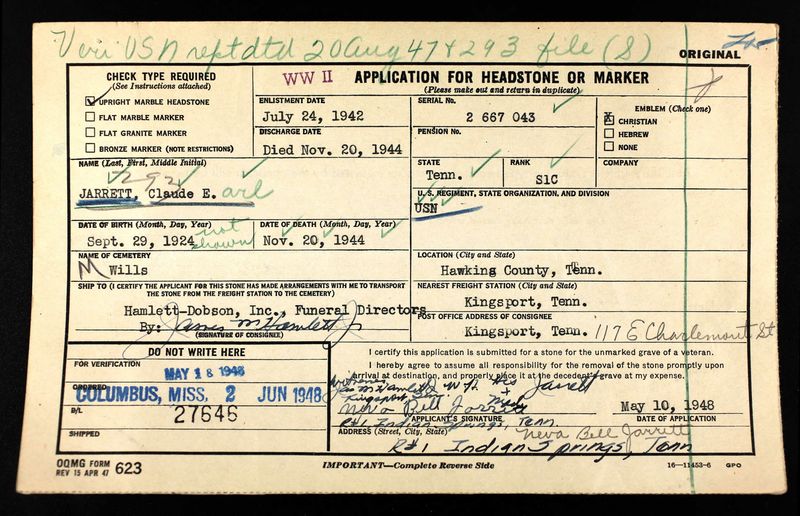 Veri USN rept dtd 20 Aug 47 & 293 file (S)
ORIGINAL
CHECK TYPE REQUIRED
(See Instructions attached)
UPRIGHT MARBLE HEADSTONE
FLAT MARBLE MARKER
FLAT GRANITE MARKER
BRONZE MARKER (NOTE RESTRICTIONS)
WW II
APPLICATION FOR HEADSTONE OR MARKER
(Please make out and return in duplicate)
ENLISTMENT DATE
July 24, 1942
DISCHARGE DATE
Died Nov. 20, 1944
SERIAL No.
2 667 043
PENSION No.
EMBLEM (Check one)
CHRISTIAN
HEBREW
NONE
NAME (Last, First, Middle Initial)
JARRETT, Claude E.
STATE
Tenn.
RANK
S1C
COMPANY
U. S. REGIMENT, STATE ORGANIZATION, AND DIVISION
USN
DATE OF BIRTH (Month, Day, Year)
Sept. 29, 1924
not shown
DATE OF DEATH (Month, Day, Year)
Nov. 20, 1944
NAME OF CEMETERY
Wills
LOCATION (City and State)
Hawking County, Tenn.
SHIP TO (I CERTIFY THE APPLICANT FOR THIS STONE HAS MADE ARRANGEMENTS WITH ME TO TRANSPORT
THE STONE FROM THE FREIGHT STATION TO THE CEMETERY)
Hamlett-Dobson, Inc., Funeral Directors
By: James M Hamlett Jr
(SIGNATURE OF CONSIGNEE)
NEAREST FREIGHT STATION (City and State)
Kingsport, Tenn.
POST OFFICE ADDRESS OF CONSIGNEE
Kingsport, Tenn. 117 E Charlemont St
DO NOT WRITE HERE
FOR VERIFICATION
MAY 18 1948
ORDERED
COLUMBUS, MISS. 2 JUN 1948
B/L
27646
SHIPPED
I certify this application is submitted for a stone for the unmarked grave of a veteran.
I hereby agree to assume all responsibility for the removal of the stone promptly upon
arrival at destination, and properly place it at the decedent's grave at my expense.
Witness
Jas M Hamlett Jr
Kingsport
His
Mark
Jarrett
Neva Bell Jarrett
Rt 1, Indian Springs, Tenn.
APPLICANT'S SIGNATURE
May 10, 1948
DATE OF APPLICATION
ADDRESS (Street, City, State)
Neva Bell Jarrett
Rt 1 Indian Springs, Tenn
OQMG FORM 623
REV 15 APR 47
IMPORTANT—Complete Reverse Side
16—11453-6 GPO